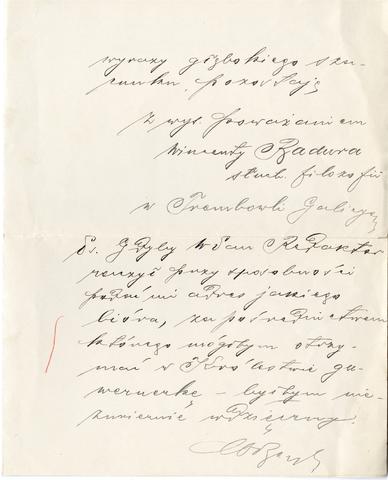 wyrazy głębokiego sza-
cunku, pozostaję
z wys. poważaniem
Wincenty Badura
stud. filozofii
w Trembowli Galicya
Ps. Gdyby W Pan Redaktor
raczył przy sposobności
podać mi adres jakiego
bióra, za pośrednictwem
którego mógłbym otrzy-
mać w Królestwie gu-
wernerkę – byłbym nie-
zmiernie wdzięczny.